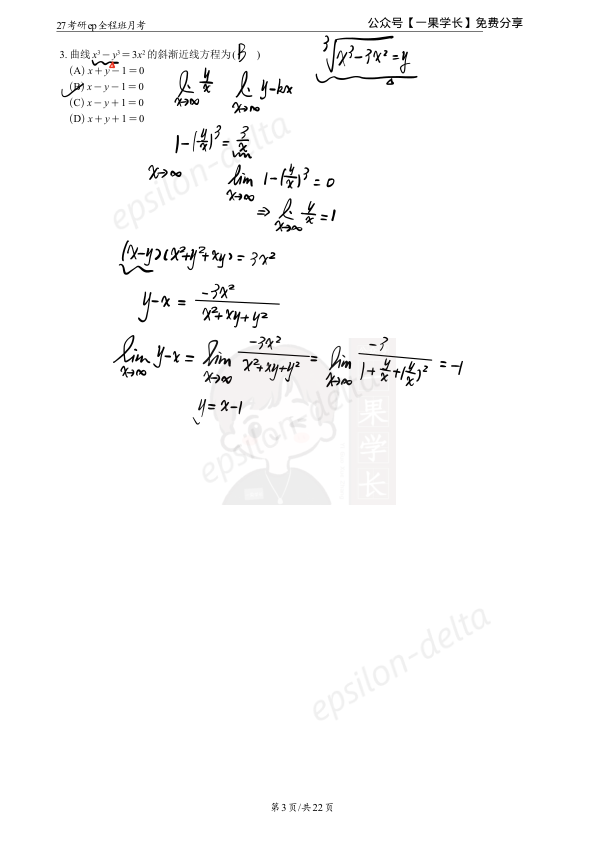 27考研ep全程班月考
公众号【一果学长】免费分享
3. 曲线 x³ − y³ = 3x² 的斜渐近线方程为( B )
(A) x + y − 1 = 0
(B) x − y − 1 = 0
(C) x − y + 1 = 0
(D) x + y + 1 = 0
∛(x³−3x²) = y
lim_{x→∞} y/x  lim_{x→∞} y−kx
1−(y/x)³ = 3/x
x→∞  lim_{x→∞} 1−(y/x)³ = 0
⇒ lim_{x→∞} y/x = 1
(x−y)(x²+y²+xy) = 3x²
y−x = −3x²/(x²+xy+y²)
lim_{x→∞} y−x = lim_{x→∞} −3x²/(x²+xy+y²) = lim_{x→∞} −3/(1+y/x+(y/x)²) = −1
y = x−1
epsilon-delta
epsilon-delta
一果学长
epsilon-delta
第 3 页/共 22 页